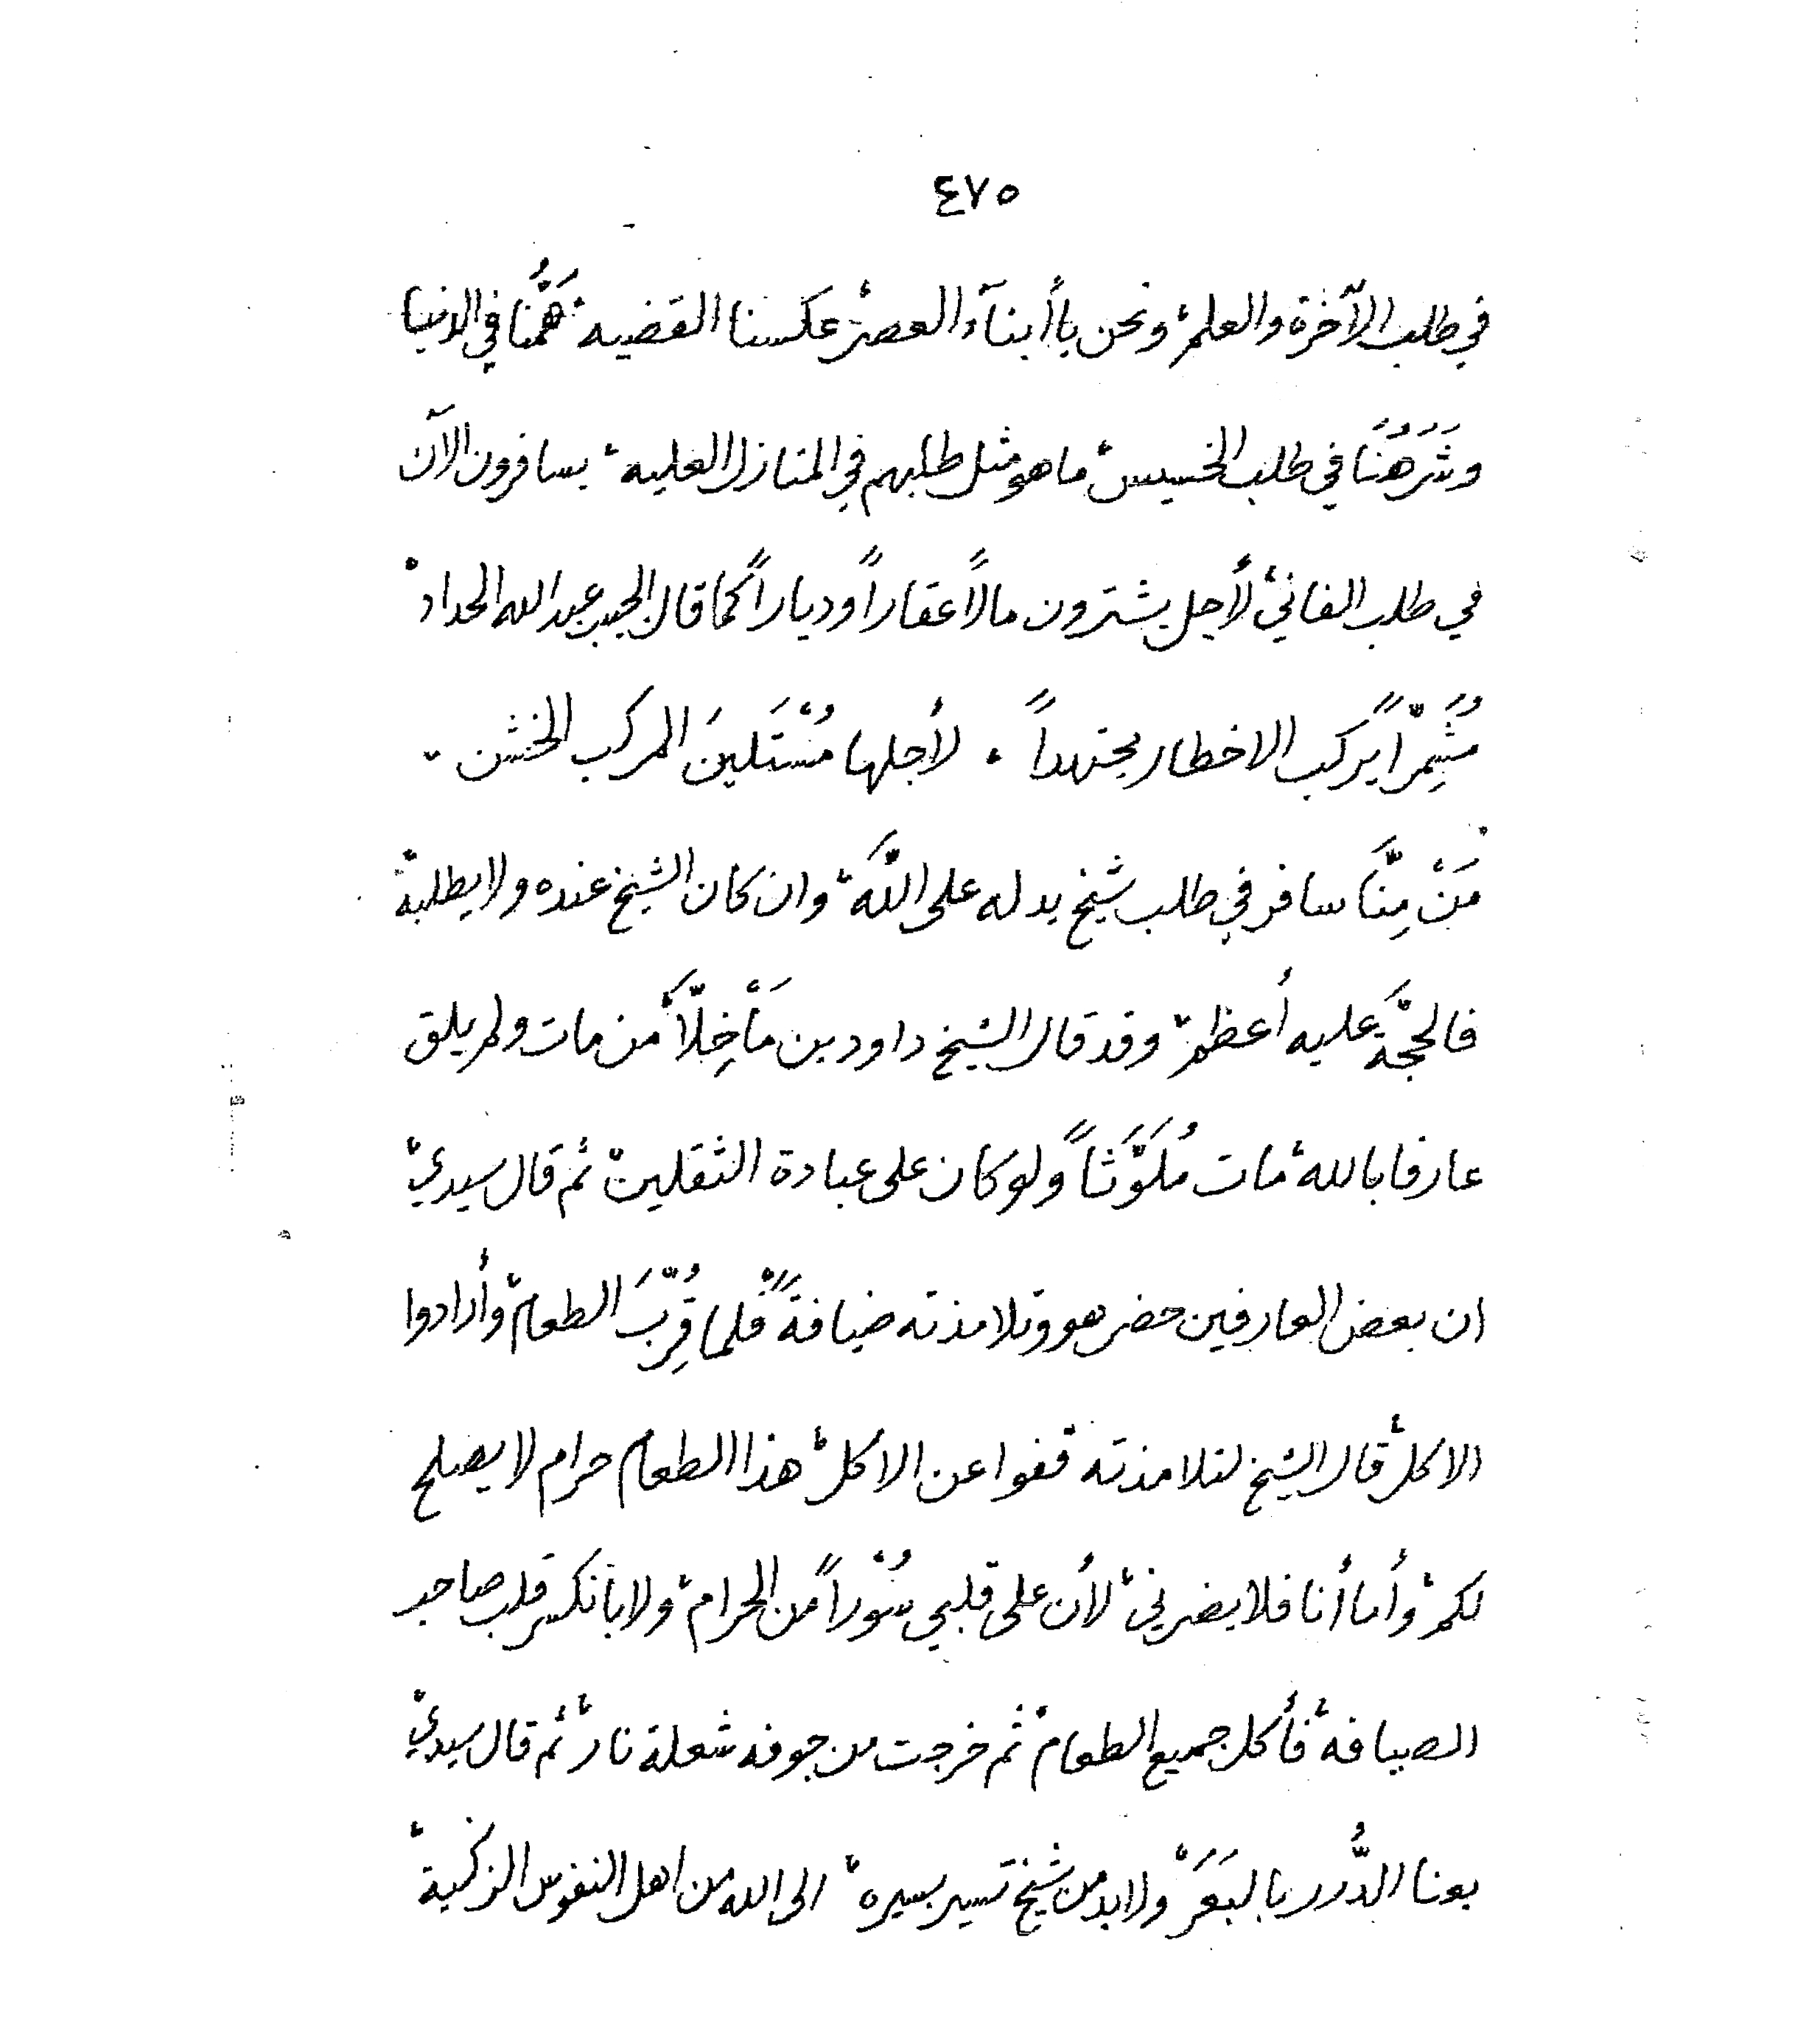 ٤٧٥
في طلب الآخرة والعلم، ونحن يا أبناء العصر، عكسنا القضيه، هَمُّنا في الدنيا
وشَرَهُنَا في طلب الخسيس، ما هو مثل طلبهم في المنازل العليه، يسافرون الآن
في طلب الفاني، لأجل يشترون مالاً عقاراً ودياراً كما قال الحبيب عبد الله الحداد،
مُشَمِّراً يركب الاخطار مجتهداً ، لأجلها مُسْتَلينَ المركب الخشن ،
مَنْ مِنَّا سافر في طلب شيخ يدله على اللّه، وان كان الشيخ عنده ولا يطلبه،
فالحجَّة عليه أعظم، وقد قال الشيخ داود بن مَاْخِلَّا، من مات ولم يلق
عارفا بالله، مات مُلَوَّثَاً ولو كان على عبادة الثقلين، ثم قال سيدي،
ان بعض العارفين حضر هو وتلامذته ضيافةً، فلما قُرِّبَ الطعام، وأرادوا
الاكل، قال الشيخ لتلامذته قفوا عن الاكل، هذا الطعام حرام لا يصلح
لكم، وأما أنا فلا يضرني، لأن على قلبي سُوْراً من الحرام، ولا بانكسر قلب صاحب
الضيافة، فأكل جميع الطعام، ثم خرجت من جوفه شعلة نار، ثم قال سيدي،
بعنا الدُّرر بالبَعَرَ، ولا بد من شيخ تسير بسيره، الى الله من اهل النفوس الزكية،